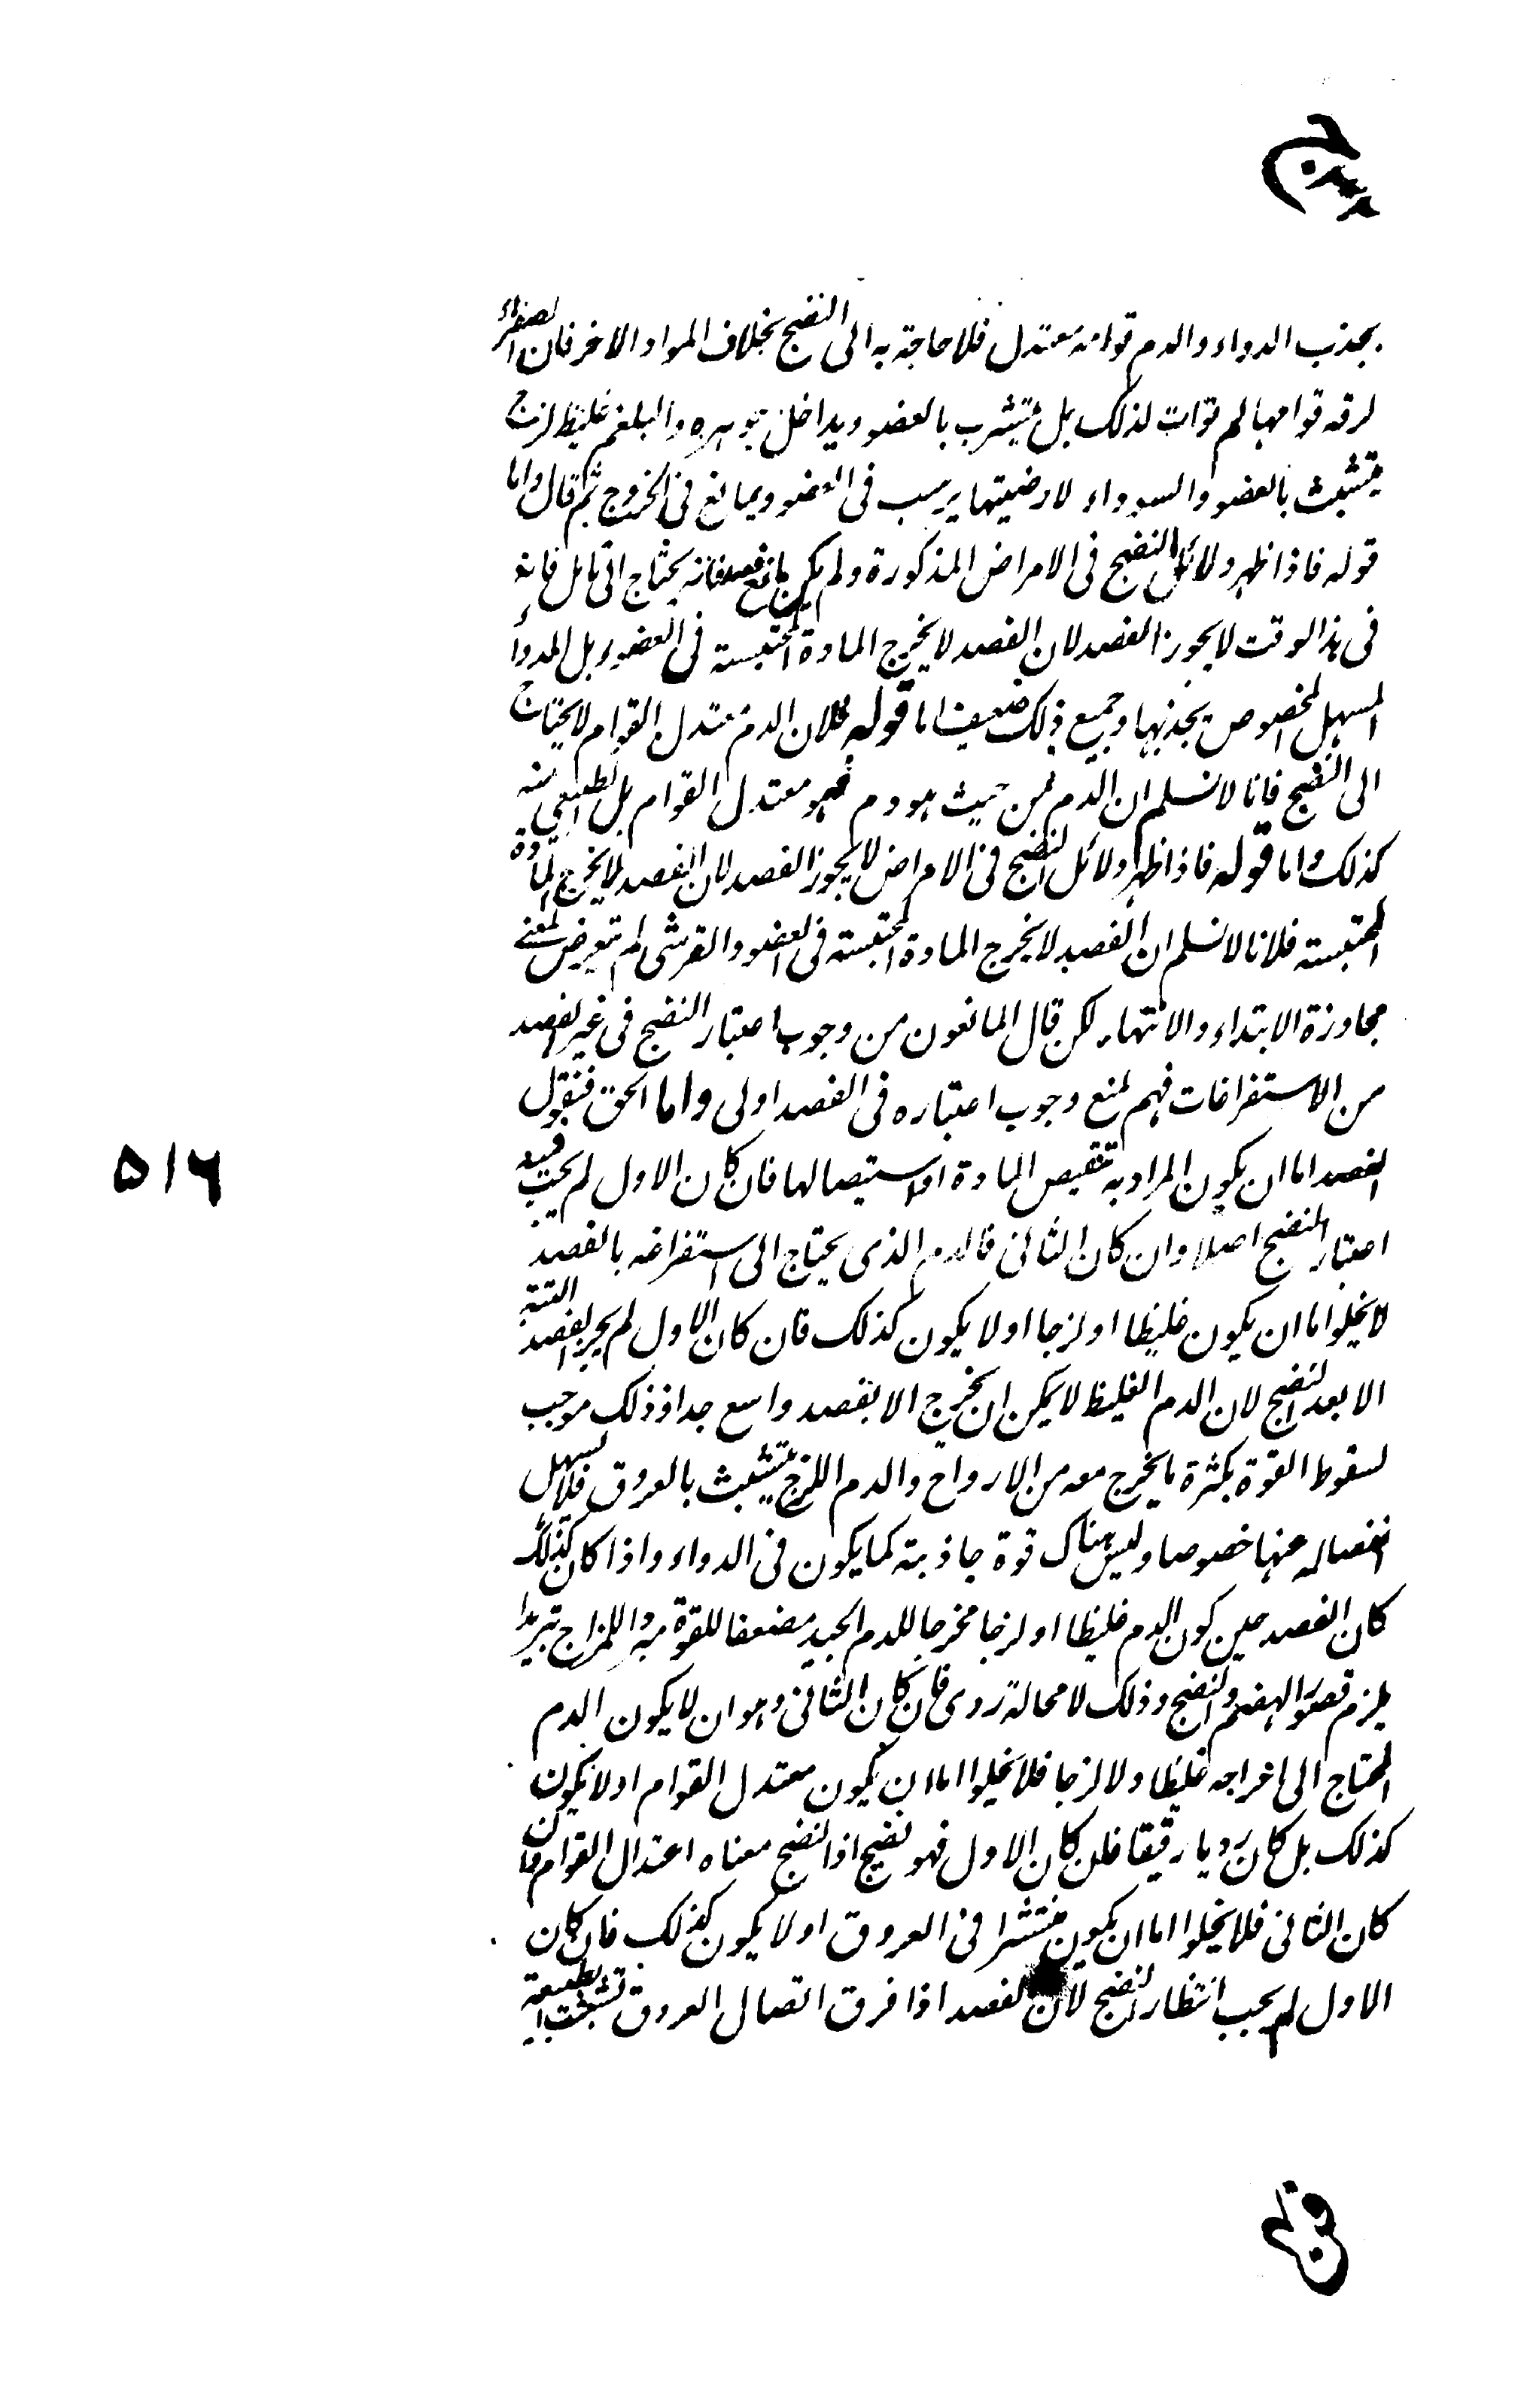 يجذب الدواء والدم قوامه معتدل فلا حاجة به الى النضج بخلاف المواد الاخر فان الصفراء
لرقة قوامها لم توات لذلك بل يتشرب بالعضو ويداخل جوهره والبلغم غليظ لزج
يتشبث بالعضو والسوداء لارضيتها يرسب فى العضو ويمانع فى الخروج ثم قال واما
قوله فاذا ظهر دلائل النضج فى الامراض المذكورة ولم يكن مانع فصد فانه يحتاج الى تامل فانه
فى هذا الوقت لا يجوز الفصد لان الفصد لا يخرج المادة المحتبسة فى العضو بل الدواء
المسهل المخصوص يجذبها وجميع ذلك ضعيف اما قوله فلان الدم معتدل القوام لا يحتاج
الى النضج فانا لا نسلم ان الدم من حيث هو دم فهو معتدل القوام بل الطبيعى منه
كذلك واما قوله فاذا ظهر دلائل النضج فى الامراض لا يجوز الفصد لان الفصد لا يخرج المادة
المحتبسة فلانا لا نسلم ان الفصد لا يخرج المادة المحتبسة فى العضو والقرشى لم يتعرض لمعنى
مجاوزة الابتداء والانتهاء لكن قال المانعون من وجوب اعتبار النضج فى غير الفصد
من الاستفراغات فهم لمنع وجوب اعتباره فى الفصد اولى واما الحق فنقول
الفصد اما ان يكون المراد به تنقيص المادة او استيصالها فان كان الاول لم يجب فيه
اعتبار النضج اصلا وان كان الثانى فالدم الذى يحتاج الى استفراغه بالفصد
لا يخلوا اما ان يكون غليظا او لزجا او لا يكون كذلك فان كان الاول لم يجز الفصد البتة
الا بعد النضج لان الدم الغليظ لا يمكن ان يخرج الا بفصد واسع جدا وذلك موجب
لسقوط القوة بكثرة ما يخرج معه من الارواح والدم اللزج يتشبث بالعروق فلا يسهل
انفصاله عنها خصوصا وليس هناك قوة جاذبة كما يكون فى الدواء واذا كان كذلك
كان الفصد حين كون الدم غليظا او لزجا مخرجا للدم الجيد مضعفا للقوة مبردا للمزاج تبريدا
يلزم قصور الهضم والنضج وذلك لا محالة ردى فان كان الثانى وهو ان لا يكون الدم
المحتاج الى اخراجه غليظا ولا لزجا فلا يخلوا اما ان يكون معتدل القوام او لا يكون
كذلك بل كان رديا رقيقا فان كان الاول فهو نضيج اذ النضج معناه اعتدال القوام فان
كان الثانى فلا يخلوا اما ان يكون منتشرا فى العروق او لا يكون كذلك فان كان
الاول لم يجب انتظار النضج لان الفصد اذا فرق اتصال العروق تشبثت الطبيعة
٥١٦